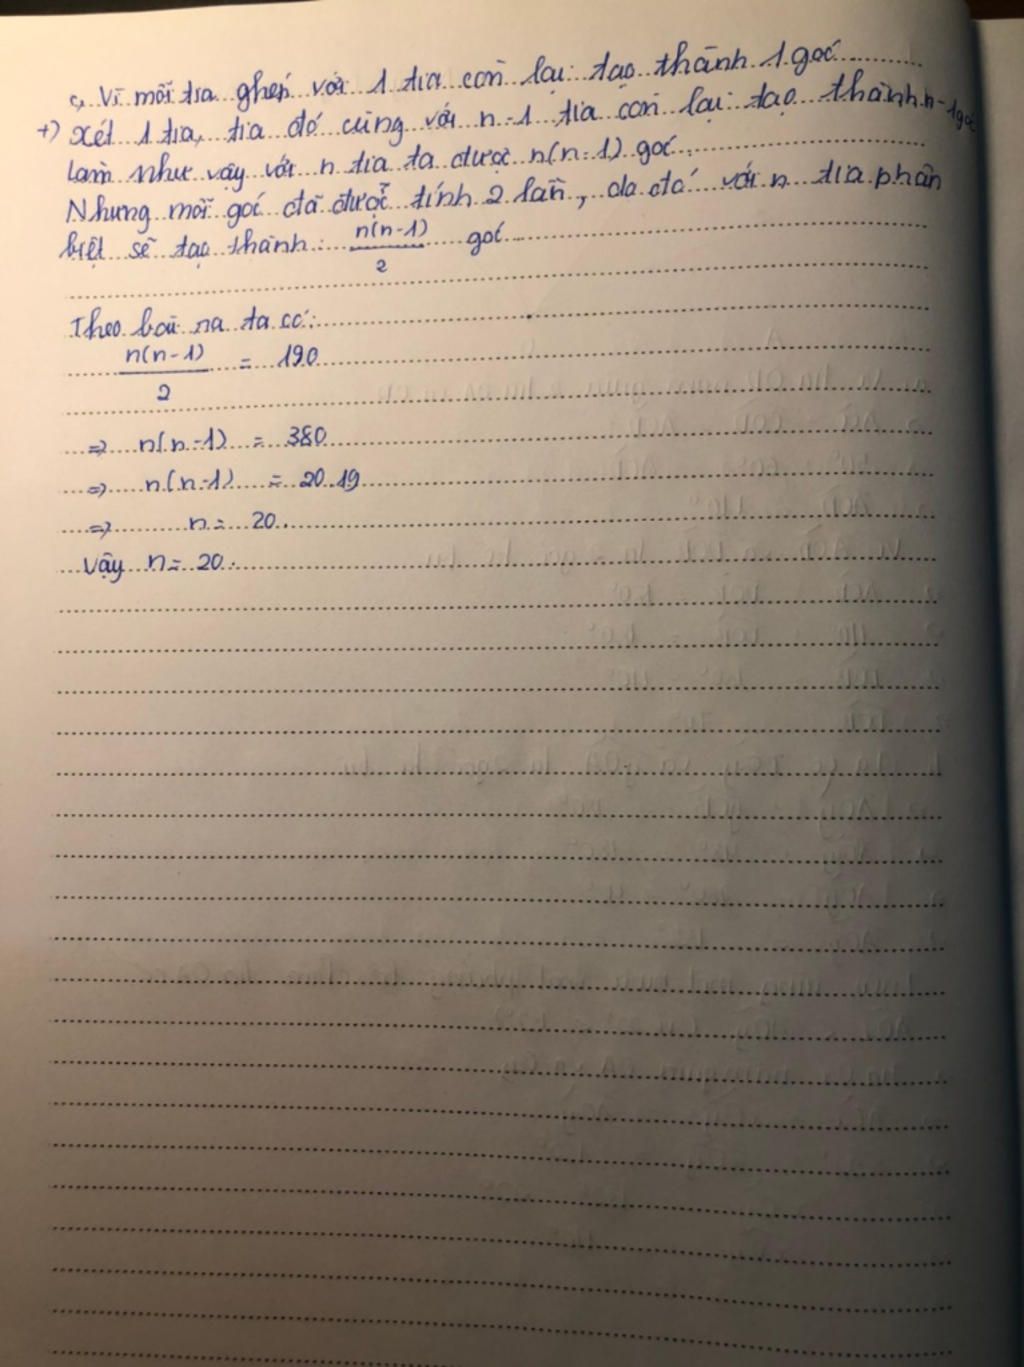 c, Vì mỗi tia ghép với 1 tia còn lại tạo thành 1 góc
+) Xét 1 tia, tia đó cùng với n-1 tia còn lại tạo thành n-1 góc
làm như vậy với n tia ta được n(n-1) góc.
Nhưng mỗi góc đã được tính 2 lần, do đó với n tia phân
biệt sẽ tạo thành: n(n-1)/2 góc
Theo bài ra ta có:
n(n-1)/2 = 190
=> n(n-1) = 380
=> n(n-1) = 20.19
=> n = 20.
Vậy n = 20.